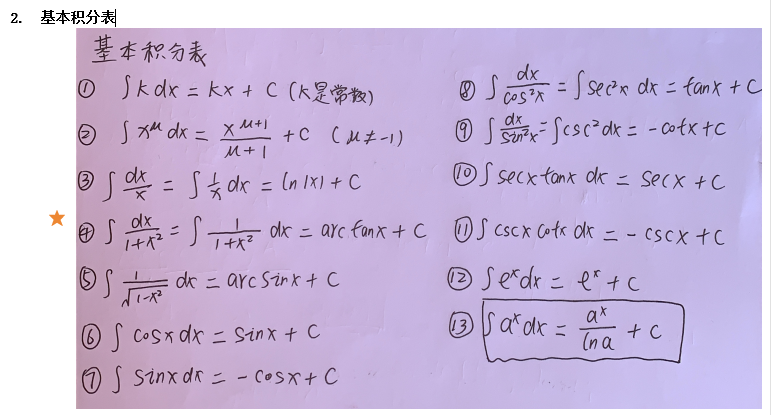 2. 基本积分表
基本积分表
① ∫kdx = kx + C (k是常数)
② ∫x^μ dx = x^(μ+1)/(μ+1) + C (μ≠-1)
③ ∫dx/x = ∫1/x dx = ln|x| + C
④ ∫dx/(1+x²) = ∫1/(1+x²) dx = arctanx + C
⑤ ∫1/√(1-x²) dx = arcsinx + C
⑥ ∫cosxdx = sinx + C
⑦ ∫sinxdx = -cosx + C
⑧ ∫dx/cos²x = ∫sec²x dx = tanx + C
⑨ ∫dx/sin²x = ∫csc²dx = -cotx + C
⑩ ∫secxtanx dx = secx + C
⑪ ∫cscxcotx dx = -cscx + C
⑫ ∫e^x dx = e^x + C
⑬ ∫a^x dx = a^x/lna + C